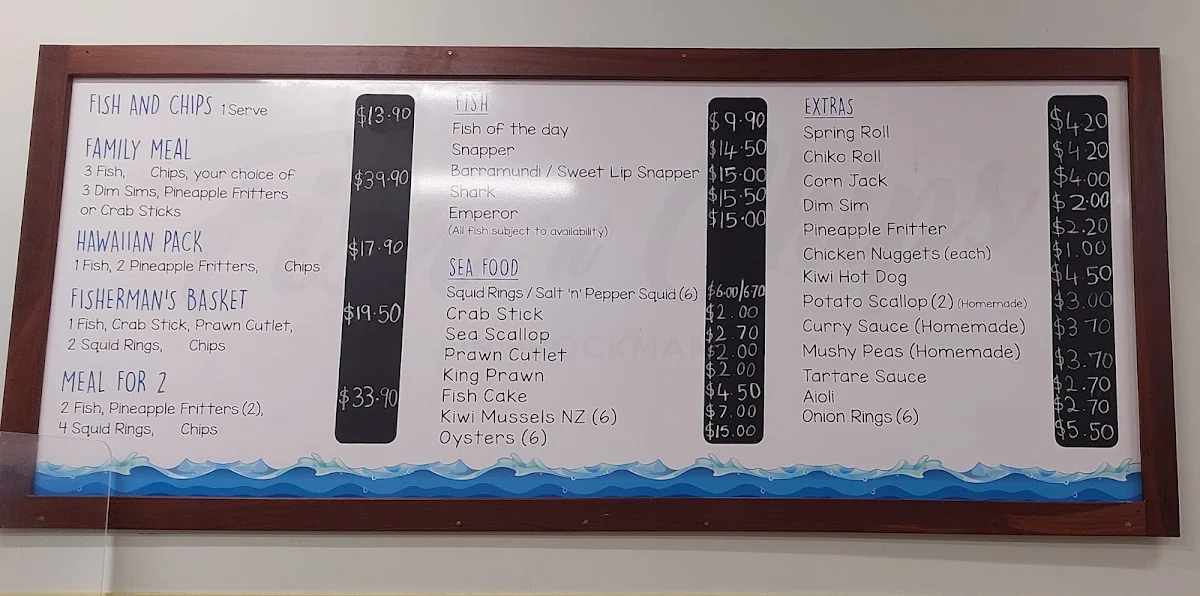 FISH AND CHIPS 1 Serve $13.90
FAMILY MEAL
3 Fish, Chips, your choice of $39.90
3 Dim Sims, Pineapple Fritters
or Crab Sticks
HAWAIIAN PACK $17.90
1 Fish, 2 Pineapple Fritters, Chips
FISHERMAN'S BASKET $19.50
1 Fish, Crab Stick, Prawn Cutlet,
2 Squid Rings, Chips
MEAL FOR 2 $33.90
2 Fish, Pineapple Fritters (2),
4 Squid Rings, Chips
FISH
Fish of the day $9.90
Snapper $14.50
Barramundi / Sweet Lip Snapper $15.00
Shark $15.50
Emperor $15.00
(All fish subject to availability)
SEA FOOD
Squid Rings / Salt 'n' Pepper Squid (6) $6.00/6.70
Crab Stick $2.00
Sea Scallop $2.70
Prawn Cutlet $2.00
King Prawn $2.00
Fish Cake $4.50
Kiwi Mussels NZ (6) $7.00
Oysters (6) $15.00
EXTRAS
Spring Roll $4.20
Chiko Roll $4.20
Corn Jack $4.00
Dim Sim $2.00
Pineapple Fritter $2.20
Chicken Nuggets (each) $1.00
Kiwi Hot Dog $4.50
Potato Scallop (2) (Homemade) $3.00
Curry Sauce (Homemade) $3.70
Mushy Peas (Homemade) $3.70
Tartare Sauce $2.70
Aioli $2.70
Onion Rings (6) $5.50